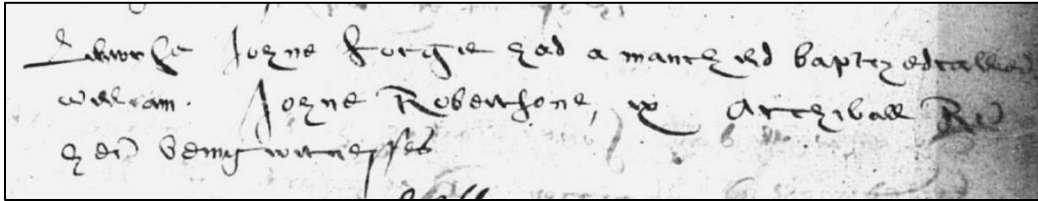 Lykwyse Johne Forgie had a manchyld baptezed called
william. Johne Robertsone, & Archibald
being witnesses